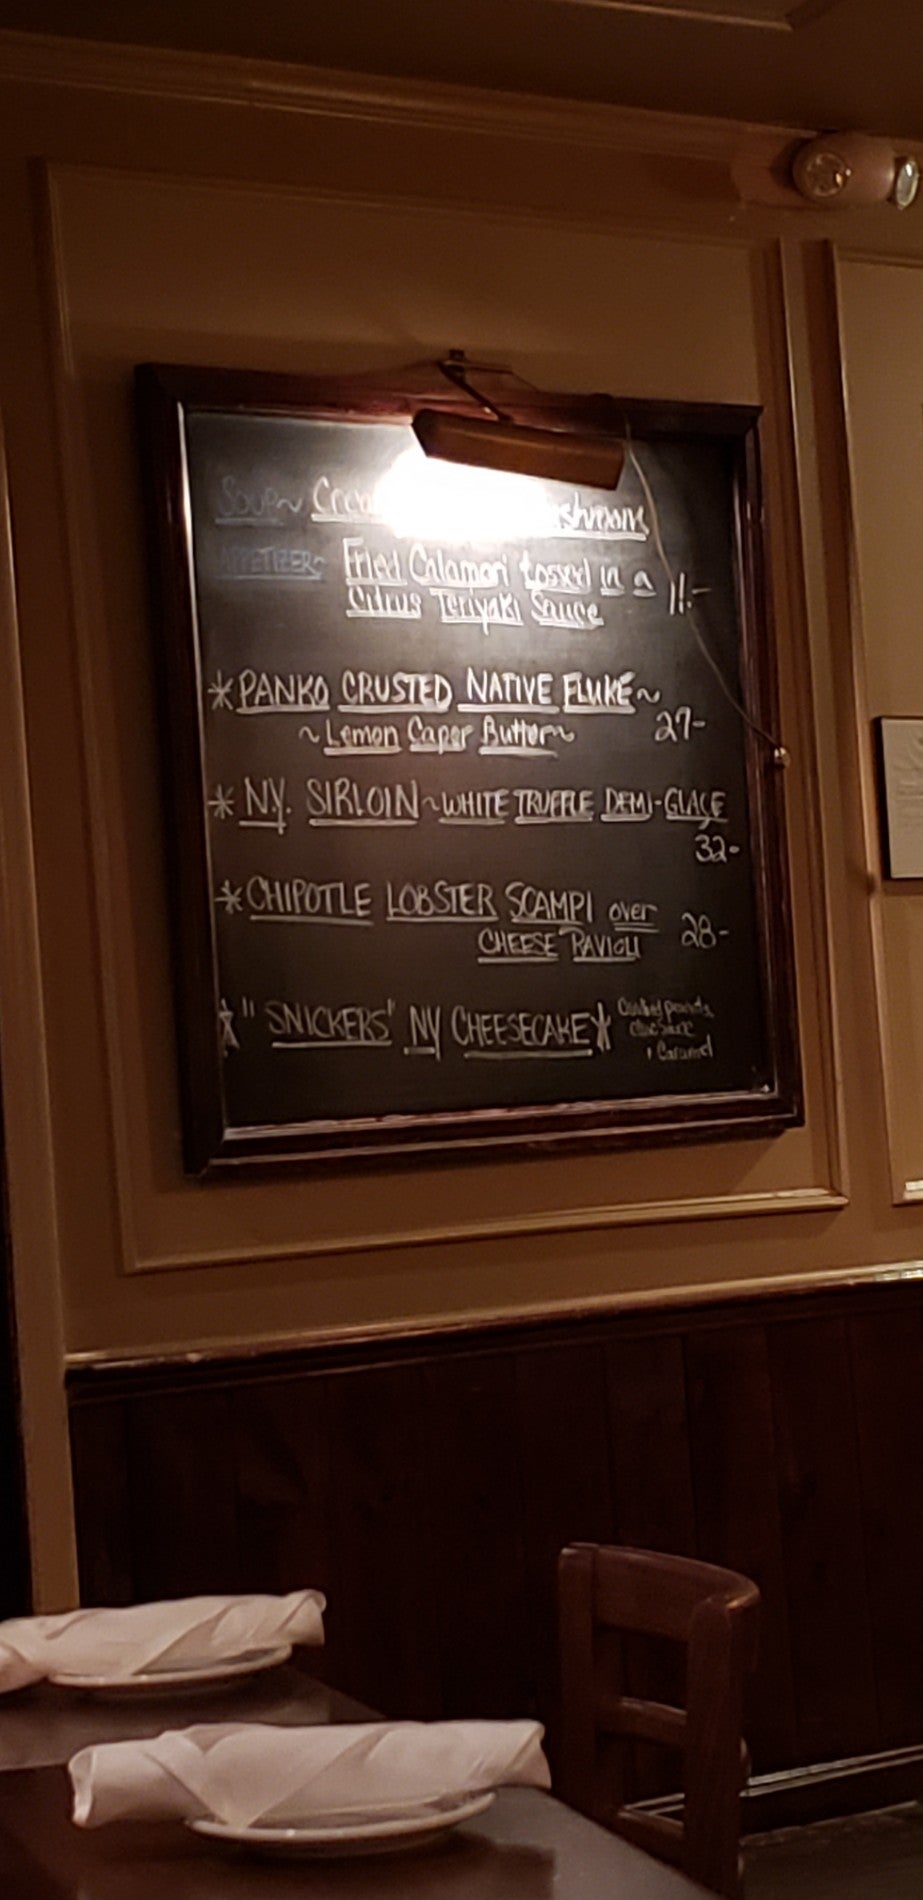 SOUP~
APPETIZER~ Fried Calamari tossed in a
Citrus Teriyaki Sauce 11.-
*PANKO CRUSTED NATIVE FLUKE~
~Lemon Caper Butter~ 27-
* N.Y. SIRLOIN ~WHITE TRUFFLE DEMI-GLACE
32-
*CHIPOTLE LOBSTER SCAMPI over
CHEESE RAVIOLI 28-
*" SNICKERS" NY CHEESECAKE*
Caramel